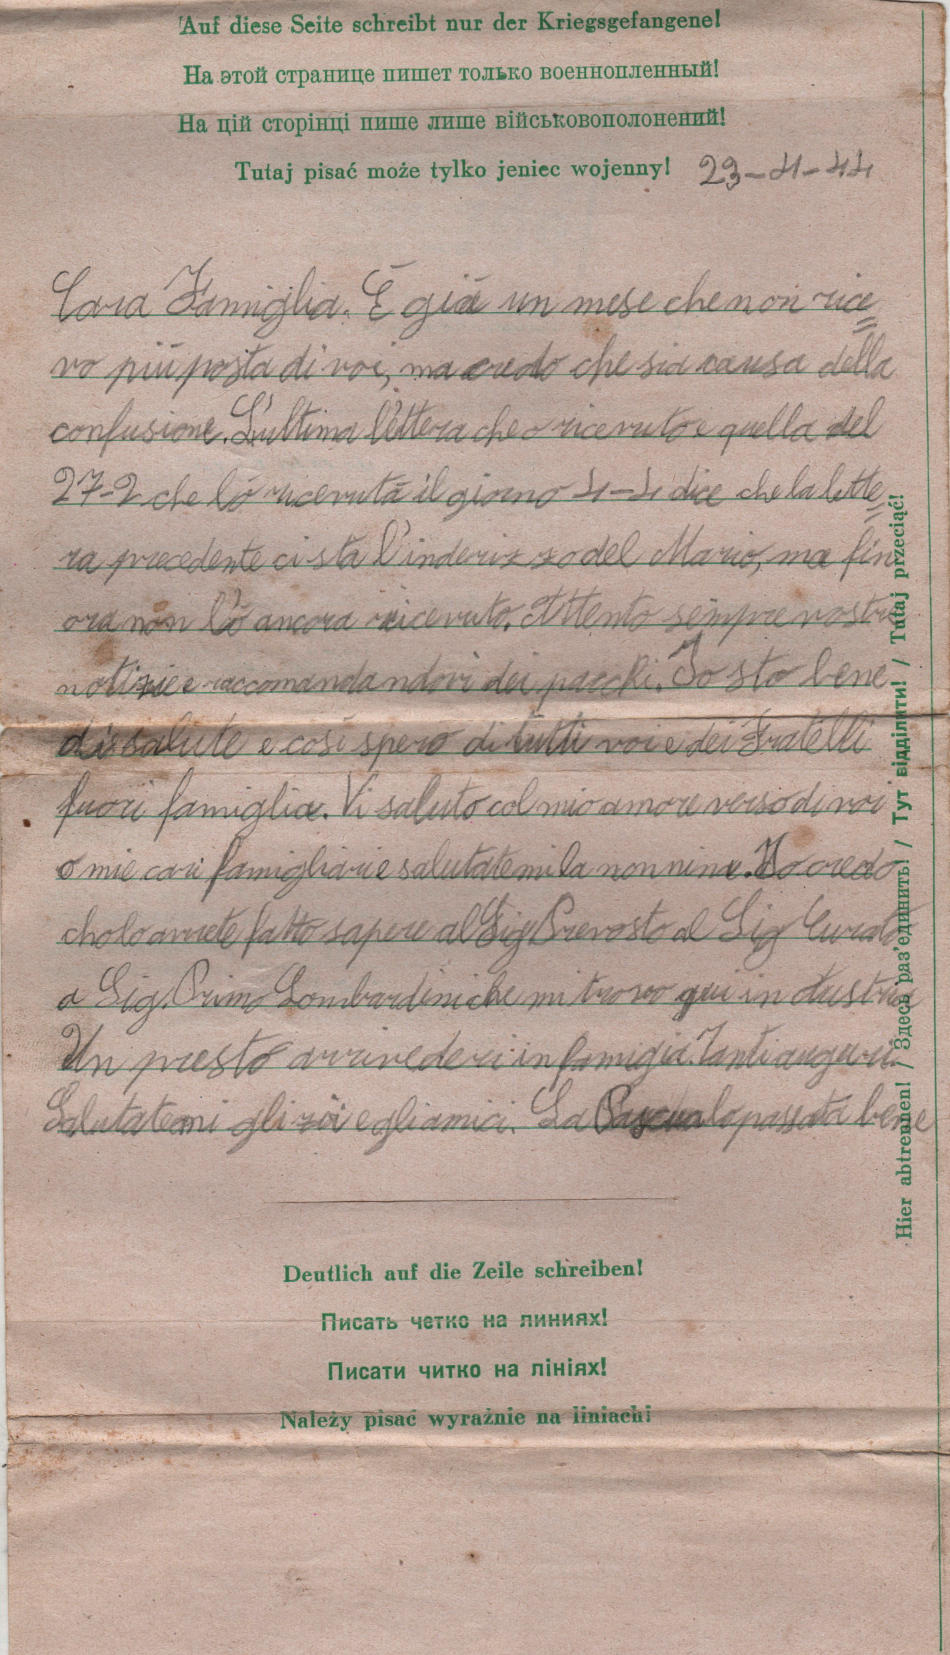 Auf diese Seite schreibt nur der Kriegsgefangene!
На этой странице пишет только военнопленный!
На цій сторінці пише лише військовополонений!
Tutaj pisać może tylko jeniec wojenny! 23-4-44
Cara Famiglia. È già un mese che non rice
vo più posta di voi, ma credo che sia causa della
confusione. L'ultima lettera che o ricevuto e quella del
27-2 che lò ricevuta il giorno 4-4 dice che la lette
ra precedente ci sta l'inderizzo del Mario, ma fin
ora non l'ò ancora ricevuto. Attento sempre vostre
notizie e raccomandandovi dei pacchi. Io sto bene
di salute e così spero di tutti voi e dei Fratelli
fuori famiglia. Vi saluto col mio amore verso di voi
o mie cari famigliari e salutatemi la nonnina. Io credo
cholo avrete fatto sapere al Sig Prevosto al Sig Curato
a Sig. Primo Lombardini che mi trovo qui in Austria
Un presto arrivederci in famigia. Tanti auguri.
Salutatemi gli zii e gli amici. La Pasqua lo passata bene
Deutlich auf die Zeile schreiben!
Писать четко на линиях!
Писати читко на лініях!
Należy pisać wyraźnie na liniach!
Hier abtrennen! / Здесь раз'единить! / Тут відділити! / Tutaj przeciąć!